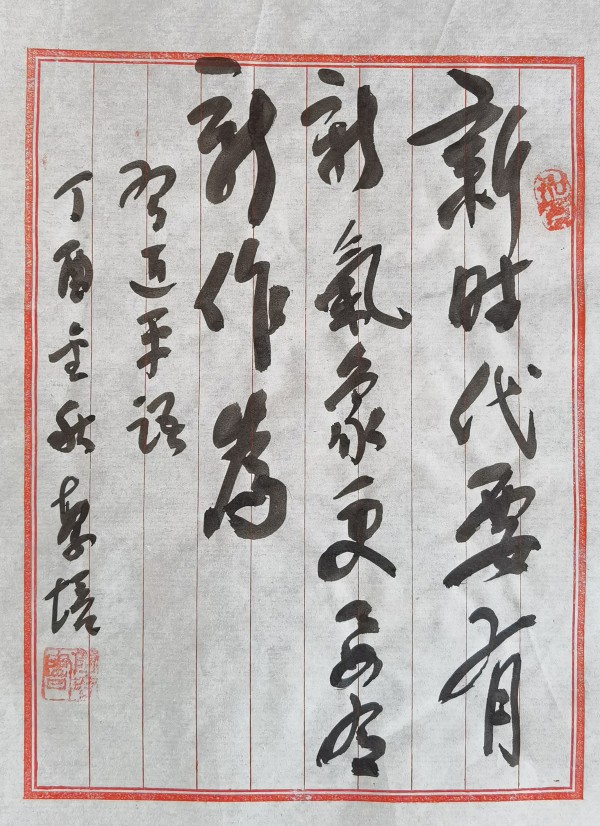 新时代要有
新氣象更要有
新作為
习近平語
丁酉金秋